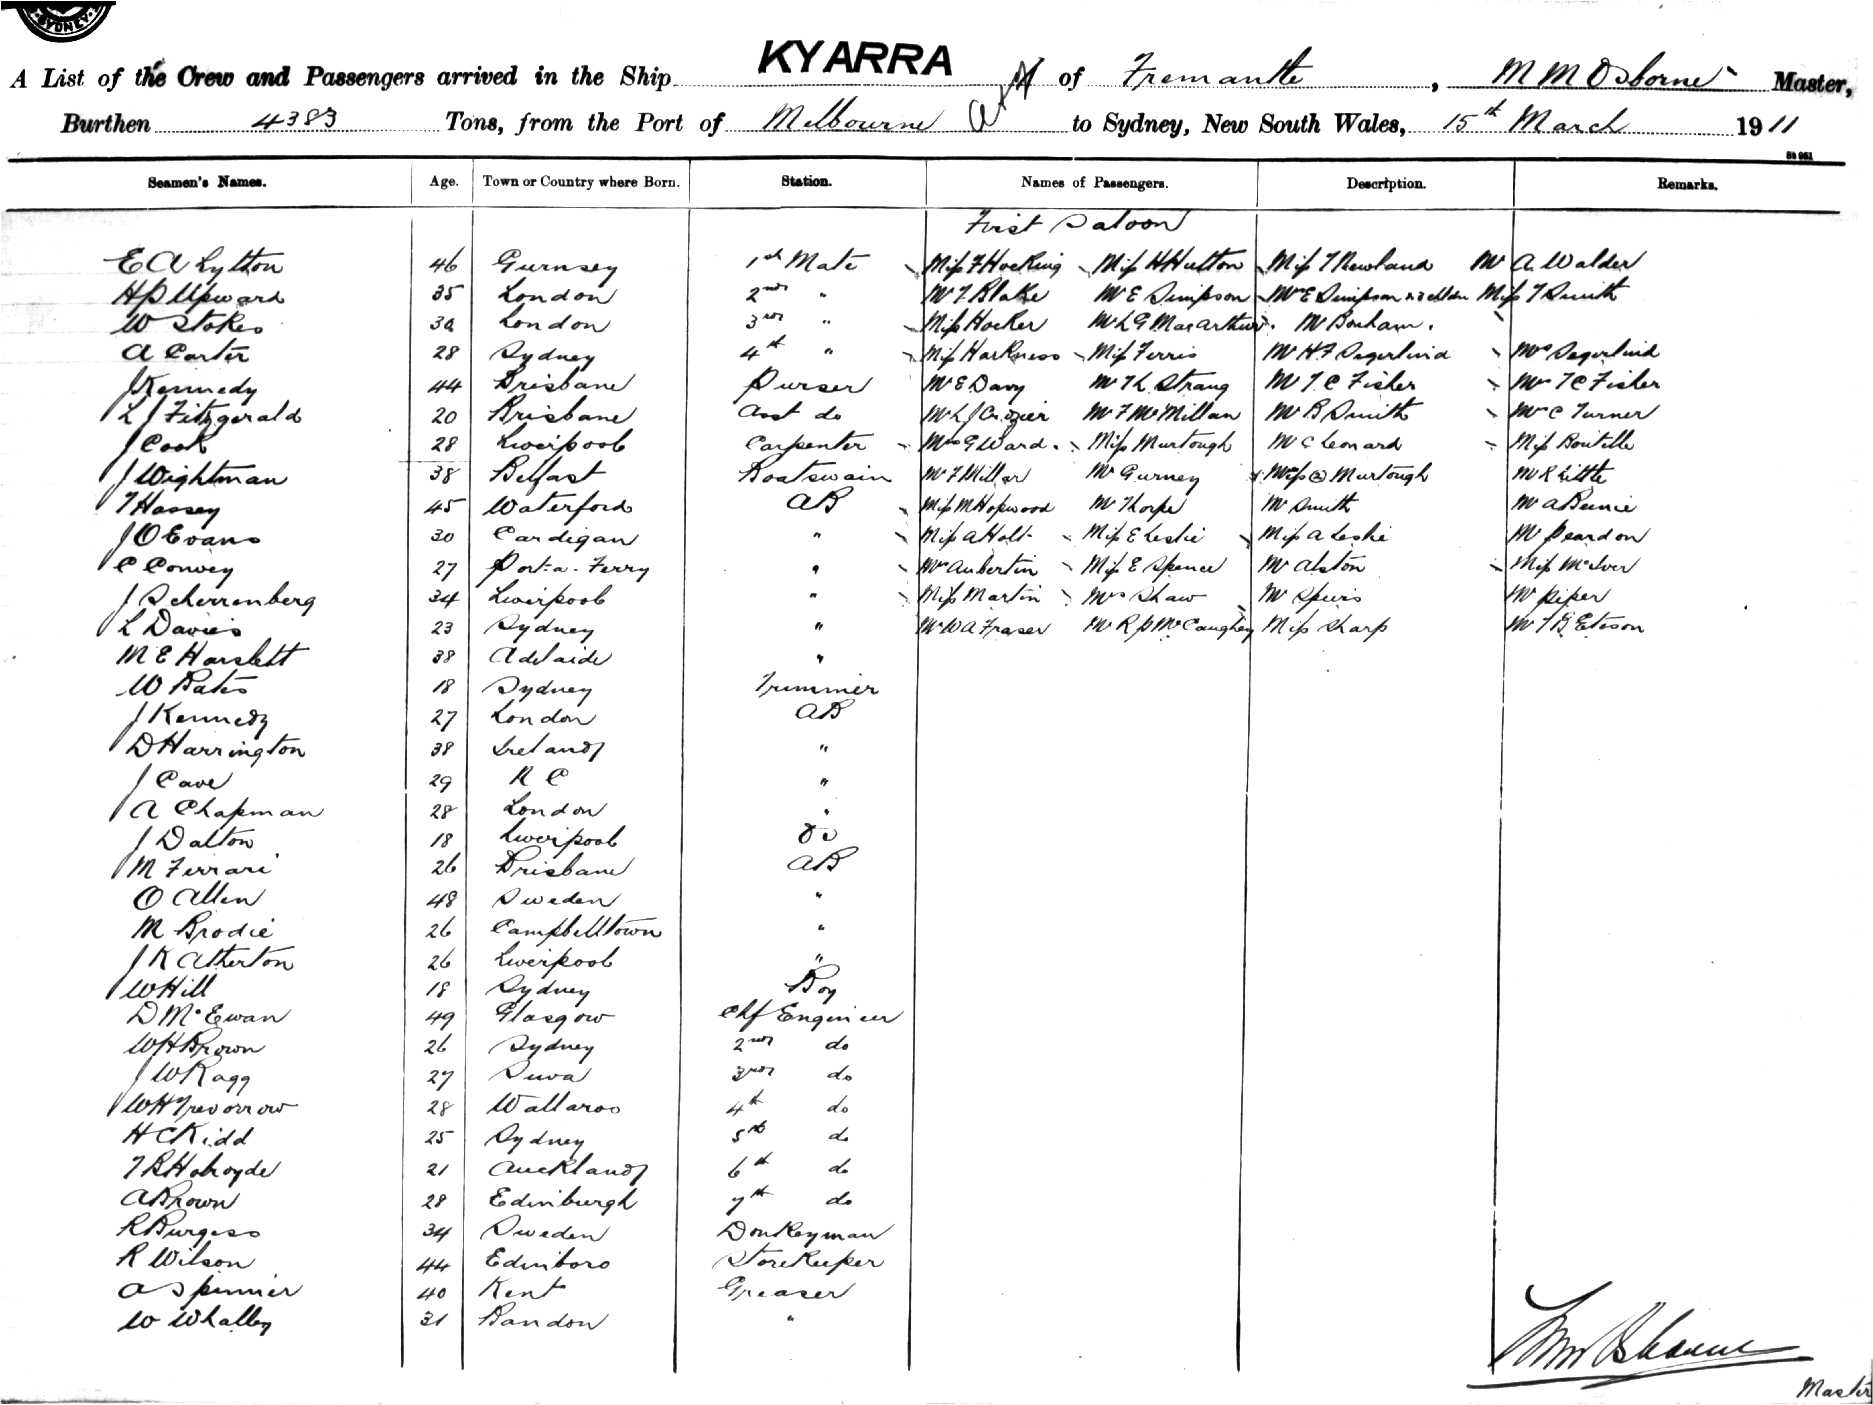 SYDNEY
A List of the Crew and Passengers arrived in the Ship KYARRA of Fremantle, M M Osborne Master,
Burthen 4383 Tons, from the Port of Melbourne to Sydney, New South Wales, 15th March 1911
Seamen's Names. Age. Town or Country where Born. Station. Names of Passengers. Description. Remarks.
First Saloon
E A Lytton 46 Gurnsey 1st Mate Miss F Hocking Miss H Hutton Miss T Newland Mr A. Walder
H P Upward 35 London 2nd " Mr T Blake Mr E Simpson Mrs E Simpson Miss T Smith
W Stokes 30 London 3rd " Miss Hocker Mr L G Macarthur Mr Bonham.
A Carter 28 Sydney 4th " Miss Harkness Miss Ferris Mr H F Segerlind Mrs Segerlind
J Kennedy 44 Brisbane Purser Mr E Davy Mr T L Strang Mr T C Fisher Mrs T C Fisher
L J Fitzgerald 20 Brisbane Asst do Mr L J Crozier Mr F McMillan Mr B Smith Mrs C Turner
J Cook 28 Liverpool Carpenter Mrs G Ward. Miss Murtough Mr C Leonard Miss Boutille
J Wightman 38 Belfast Boatswain Mr F Millar Mr Gurney Miss Murtough Mr R Little
T Hassey 45 Waterford AB Miss M Hopwood Mr Thorpe Mr Smith Mr A Beinie
J O Evans 30 Cardigan " Miss A Holt Miss E Leslie Miss A Leslie Mr Peardon
C Convey 27 Port-a-Ferry " Mrs Aubertin Miss E Spence Mr Alston Miss McIver
J Scherrenberg 34 Liverpool " Miss Martin Mrs Shaw Mr Speirs Mr Piper
L Davies 23 Sydney " Mr W A Fraser Mr R P McCaughey Miss Sharp Mr T B Eteson
M E Harslett 38 Adelaide "
W Bates 18 Sydney Trimmer
J Kennedy 27 London AB
D Harrington 38 Ireland "
J Cave 29 "
A Chapman 28 London "
J Dalton 18 Liverpool
M Ferrari 26 Brisbane AB
O Allen 48 Sweden "
M Brodie 26 Campbelltown "
J K Atherton 26 Liverpool "
W Hill 18 Sydney Boy
D McEwan 49 Glasgow Chf Engineer
W H Brown 26 Sydney 2nd do
J W Ragg 27 Suva 3rd do
W H Trevorrow 28 Wallaroo 4th do
H C Kidd 25 Sydney 5th do
T R Holroyde 21 Auckland 6th do
A Brown 28 Edinburgh 7th do
R Burgess 34 Sweden Donkeyman
R Wilson 44 Edinboro Storekeeper
A Spinner 40 Kent Greaser
W Whalley 31 Bandon "
Master